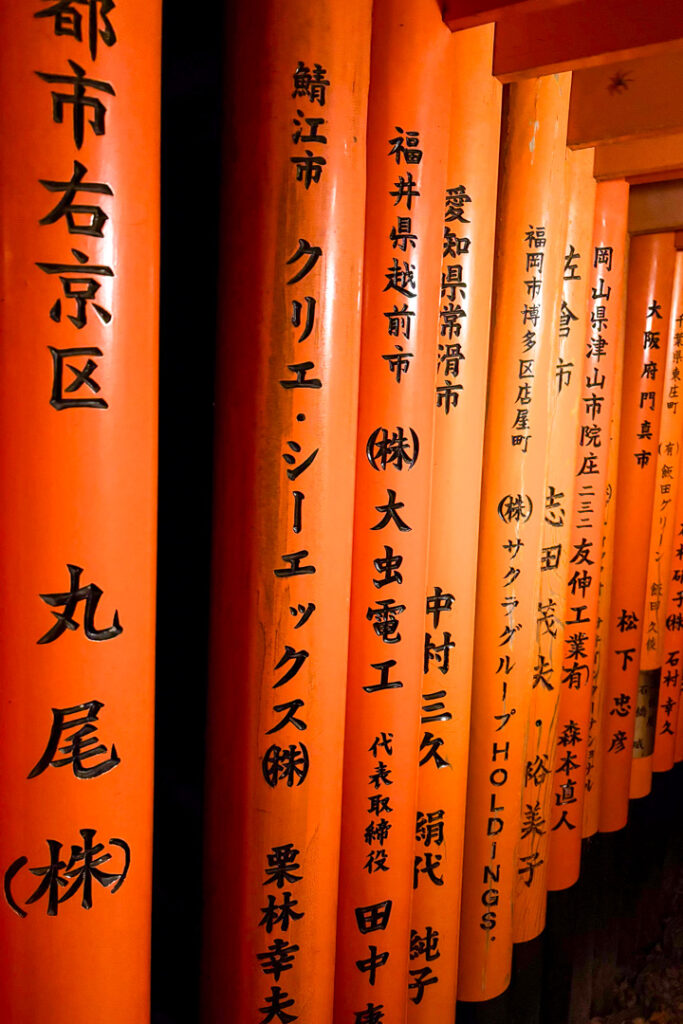 都市右京区 丸尾㈱
鯖江市 クリエ・シーエックス㈱ 栗林幸夫
福井県越前市 ㈱大虫電工 代表取締役 田中
愛知県常滑市 中村三久 絹代 純子
福岡市博多区店屋町 ㈱サクラグループHOLDINGS.
佐倉市 志田茂夫・裕美子
岡山県津山市院庄二三二 友伸工業㈲ 森本直人
大阪府門真市 松下忠彦
千葉県東庄町 ㈲飯田グリーン 飯田久俊
㈱石村幸久